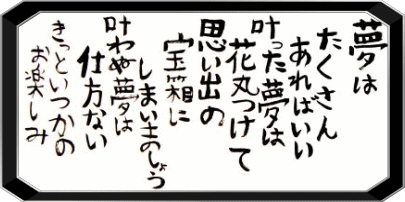 夢は
たくさん
あればいい
叶った夢は
花丸つけて
思い出の
宝箱に
しまいましょう
叶わぬ夢は
仕方ない
きっといつかの
お楽しみ